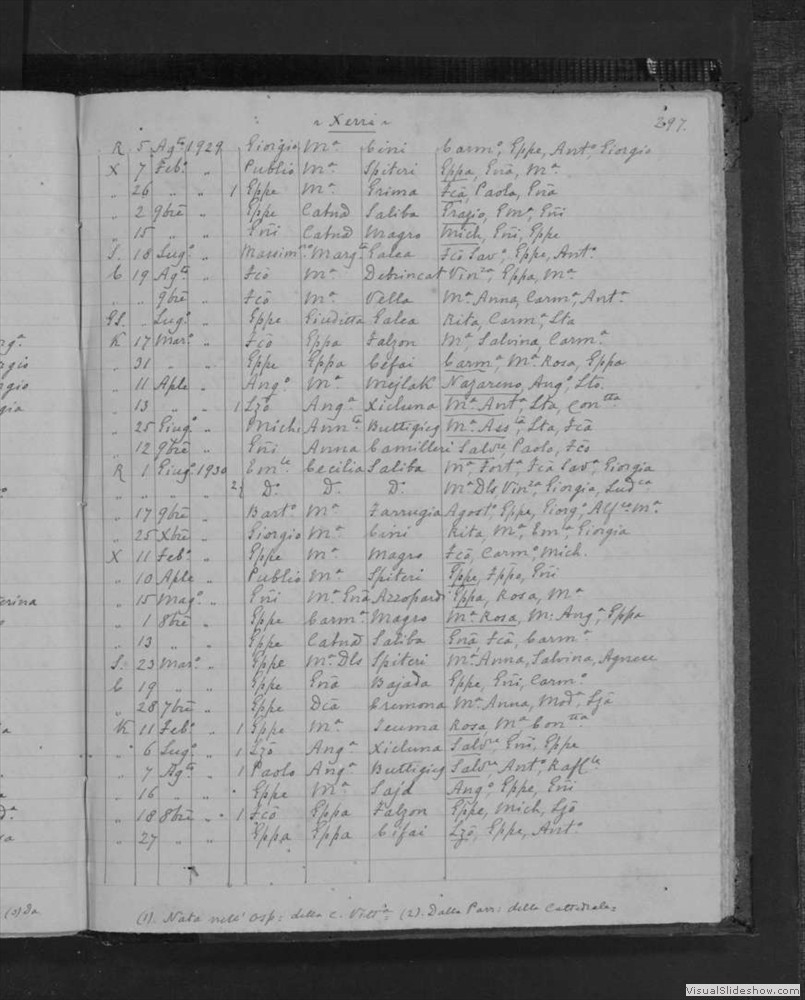 " Xerri "
297.
R 5 Agto 1929 Giorgio Ma Cini Carmo, Eppe, Anto, Giorgio
X 7 Febo " Publio Ma Spiteri Eppa, Enã, Ma
" 26 " " 1 Eppe Ma Grima Fcã, Paola, Enã
" 2 9bre " Eppe Catnã Saliba Grazio, Emo, Eñi
" 15 " " Eñi Catnã Magro Mich, Eñi, Eppe
S. 18 Lugo " Massimno Marga Galea Fcõ Savo, Eppe, Anto
C 19 Agto " Fcõ Ma Debrincat Vinza, Eppa, Ma
" " 9bre " Fcõ Ma Vella Ma Anna, Carma, Anta
GS. " Lugo " Eppe Giuditta Galea Rita, Carma, Sta
K 17 Maro " Fcõ Eppa Falzon Ma, Salvina, Carma
" 31 " " Eppe Eppa Cefai Carma, Ma Rosa, Eppa
" 11 Aple " Ango Ma Mejlak Nazareno, Ango, Sto
" 13 " " 1 Lzõ Anga Xicluna Ma Anta, Sta, Contta
" 25 Giugo " Michi Annta Buttigieg Ma Assta, Sta, Fcã
" 12 9bre " Eñi Anna Camilleri Salvre, Paolo, Fcõ
R 1 Giugo 1930 Emle Cecilia Saliba Ma Forta, Fcã Sava, Giorgia
" " " " 2) Do Do Do Ma Dls, Vinza, Giorgia, Ludca
" 17 9bre " Barto Ma Farrugia Agosto, Eppe, Giorgo, Alf Ma
" 25 Xbre " Giorgio Ma Cini Rita, Ma, Emla, Giorgia
X 11 Febo " Eppe Ma Magro Fcõ, Carmo, Mich.
" 10 Aple " Publio Ma Spiteri Eppe, Fppa, Eñi
" 15 Mago " Eñi Ma Enã Azzopardi Eppa, Rosa, Ma
" 1 8bre " Eppe Carma Magro Ma Rosa, Ma Anga, Eppa
" 13 " " Eppe Catnã Saliba Enã, Fcã, Carma
S. 23 Maro " Eppe Ma Dls Spiteri Ma Anna, Salvina, Agnese
C 19 " " Eppe Enã Bajada Eppe, Eñi, Carmo
" 28 7bre " Eppe Dcã Cremona Ma Anna, Moda, Lzã
K 11 Febo " 1 Eppe Ma Teuma Rosa, Ma Contta
" 6 Lugo " 1 Lzõ Anga Xicluna Salvre, Eñi, Eppe
" 7 Agto " 1 Paolo Anga Buttigieg Salvre, Anto, Raffle
" 16 " " Eppe Ma Said Ango, Eppe, Eñi
" 18 8bre " 1 Fcõ Eppa Falzon Eppe, Mich, Lzõ
" 27 " " Eppa Eppa Cefai Lzõ, Eppe, Anto
(1). Nata nell' Osp: della C. Vitta = (2). Dalla Parr: della Cattedrale =
(3) Da
VisualSlideshow.com